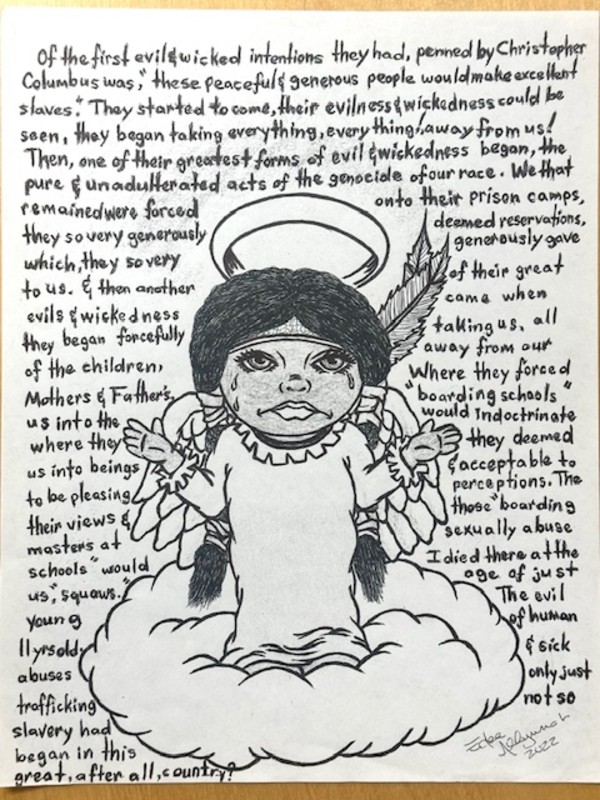 Of the first evil & wicked intentions they had, penned by Christopher
Columbus was, "these peaceful & generous people would make excellent
slaves." They started to come, their evilness & wickedness could be
seen, they began taking everything, everything! away from us!
Then, one of their greatest forms of evil & wickedness began, the
pure & unadulterated acts of the genocide of our race. We that
remained were forced onto their prison camps,
they so very generously deemed reservations,
which, they so very generously gave
to us. & then another of their great
evils & wickedness came when
they began forcefully taking us, all
of the children, away from our
Mothers & Father's, Where they forced
us into the "boarding schools"
where they would Indoctrinate
us into beings they deemed
to be pleasing & acceptable to
their views & perceptions. The
masters at those "boarding
schools" would sexually abuse
us, "squaws." I died there at the
young age of just
11 yrs old. The evil
abuses of human
trafficking & sick
slavery had only just
began in this not so
great, after all, country?
2022